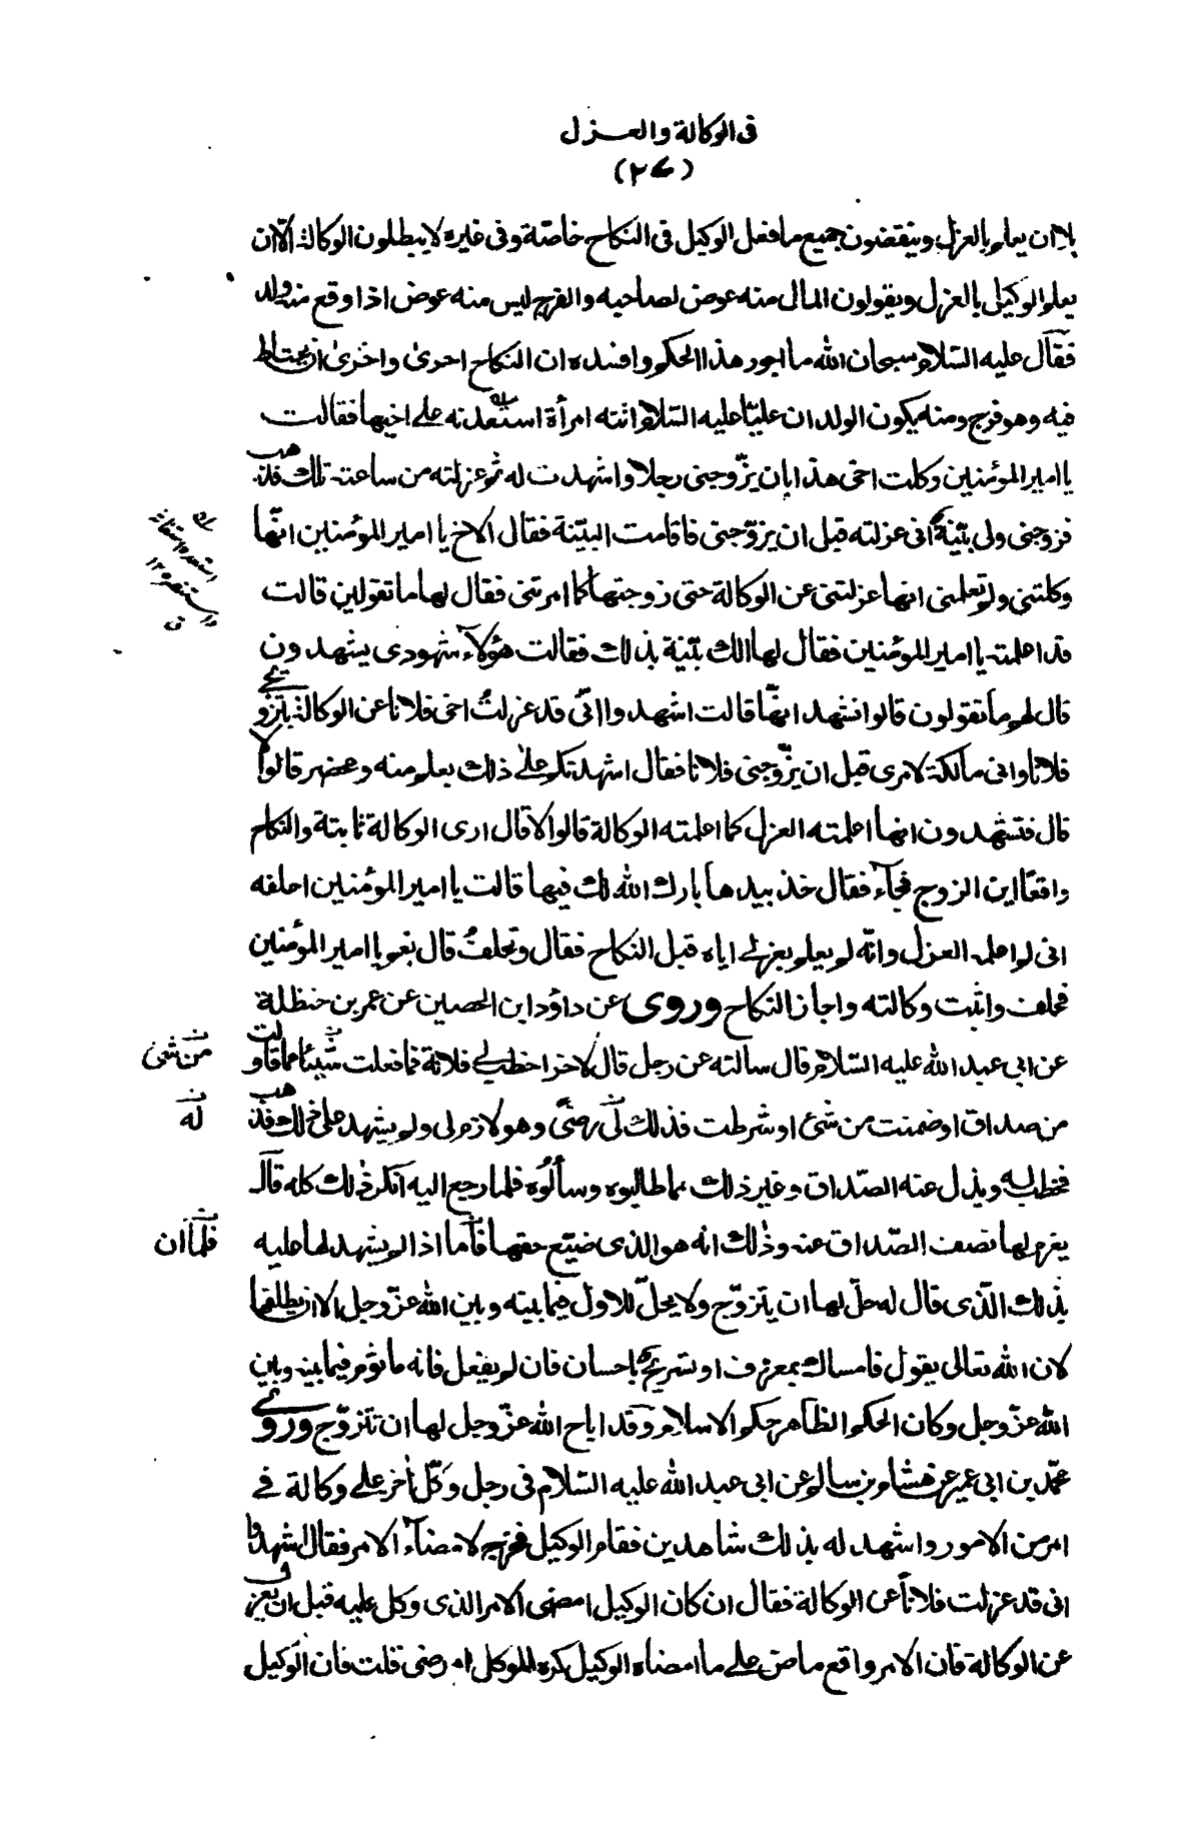 فى الوكالة والعــزل
(٢٧)
بلا ان يعلم بالعزل وينقضون جميع ما فعل الوكيل فى النكاح خاصّة وفى غيره لا يبطلون الوكالة الّا ان
يعلم الوكيل بالعزل ويقولون المال منه عوض لصاحبه والفرج ليس منه عوض اذا وقع منه ولد
فقال عليه السّلام سبحان الله ما اجور هذا الحكم وافسده ان النكاح احرى واحرى ان يحتاط
فيه وهو فرج ومنه يكون الولد ان عليّا عليه السّلام اتته امرأة استعدته على اخيها فقالت
يا امير المؤمنين وكلت اخى هذا بان يزّوجنى رجلا واشهدت له ثم عزلته من ساعته تلك فذهب
فزوجنى ولى بيّنة انى عزلته قبل ان يزوّجنى فاقامت البيّنة فقال الاخ يا امير المؤمنين انّها
وكلتنى ولم تعلمنى انها عزلتنى عن الوكالة حتى زوجتها كما امرتنى فقال لها ما تقولين قالت
قد اعلمته يا امير المؤمنين فقال لها الك بيّنة بذلك فقالت هؤلاء شهودى يشهدون
قال لهم ما تقولون قالوا نشهد انّها قالت اشهدوا انّى قد عزلتُ اخى فلانا عن الوكالة بتزويجى
فلانا وانى مالكة لامرى قبل ان يزّوجنى فلانا فقال اشهدتكم على ذلك بعلم منه ومحضر قالوا لا
قال فتشهدون انها اعلمته العزل كما اعلمته الوكالة قالوا لا قال ارى الوكالة ثابتة والنكاح
واقعًا اين الزوج فجآء فقال خذ بيدها بارك الله لك فيها قالت يا امير المؤمنين احلفه
انى لم اعلمه العزل وانّه لم يعلم بعزلى اياه قبل النكاح فقال وتحلفُ قال نعم يا امير المؤمنين
فحلف واثبت وكالته واجاز النكاح وروى عن داؤد ابن الحصين عن عمر بن حنظلة
عن ابى عبد الله عليه السّلام قال سالته عن رجل قال لاخر اخطب لى فلانة فما فعلت شيئا مما قاولت
من صداق او ضمنت من شئ او شرطت فذلك لى رضىً وهو لازم لى ولم يشهد على ذلك فذهب
فخطب له وبذل عنه الصّداق وغير ذلك مما طالبوه وسألُوه فلما رجع اليه انكر ذٰلك كله قال
يغرم لها نصف الصّداق عنه وذٰلك انه هو الذى ضيّع حقها فأما اذا لم يشهد لها عليه
بذٰلك الّذى قال له حلّ لها ان يتزوّج ولا يحلّ للاول فيما بينه وبين الله عزّ وجل الا ان يطلقها
لان الله تعالى يقول فامساك بمعروف او تسريحٌ باحسان فان لم يفعل فانه ماثوم فيما بينه وبين
الله عزّ وجل وكان الحكم الظاهر حكم الاسلام وقد اباح الله عزّ وجل لها ان تتزوّج وروى
محمّد بن ابى عمير عن هشام بن سالم عن ابى عبد الله عليه السّلام فى رجل وكّل اٰخر على وكالة فى
امر من الامور واشهد له بذلك شاهدين فقام الوكيل فخرج لامضآء الامر فقال اشهدوا
انى قد عزلت فلاناً عن الوكالة فقال ان كان الوكيل امضى الامر الذى وكل عليه قبل ان يعزل
عن الوكالة فان الامر واقع ماض على ما امضاه الوكيل كره الموكل ام رضى قلت فان الوكيل
استعداه استغاثه
واستنصره ١٢
ق
من شئ
له
فلمّا ان